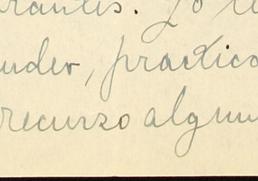 rantes. Lo
nder, practico
recurzo algun